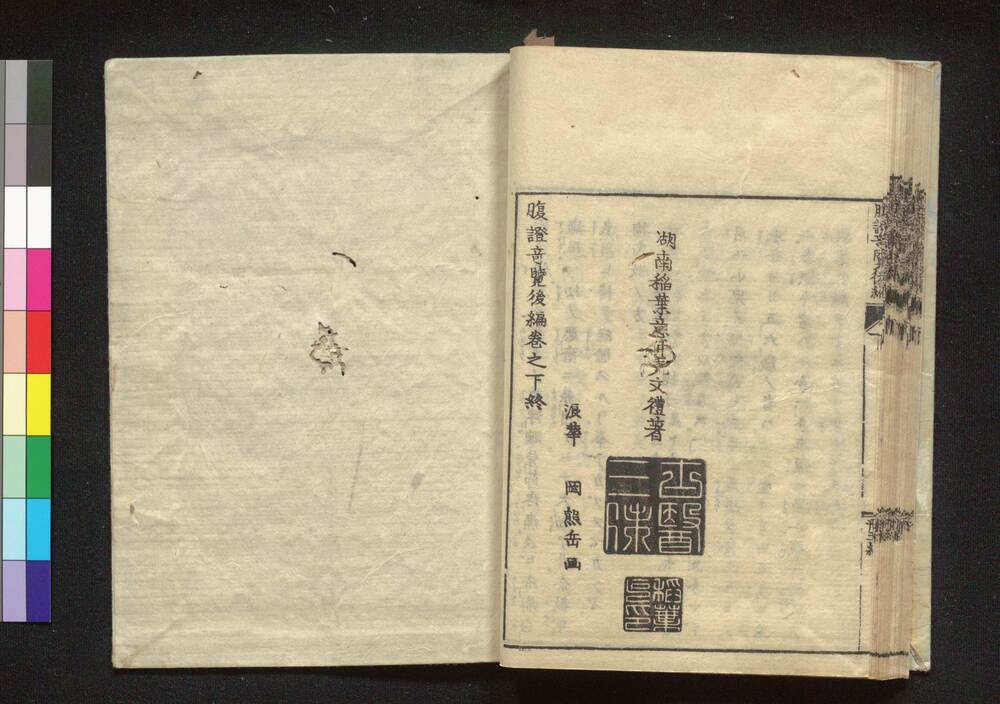 湖南稲葉意仲克文禮著
浪華 岡熊岳画
腹證奇覽後編卷之下終
稻葉